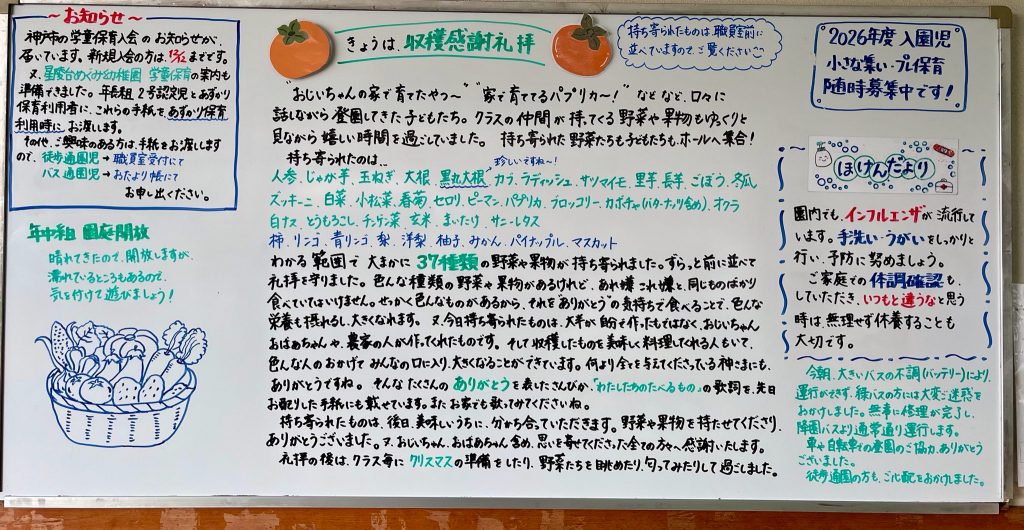 ～お知らせ～
神戸市の学童保育入会のお知らせが、
届いています。新規入会の方は、12/12までです。
又、星陵台めぐみ幼稚園 学童保育の案内も
準備できました。年長組、2号認定児とあずかり
保育利用者に、これらの手紙を、あずかり保育
利用時にお渡します。
その他、ご興味のある方は、手紙をお渡しします
ので、徒歩通園児→職員室受付にて
バス通園児→おたより帳にて
お申し出ください。
年中組 園庭開放
晴れてきたので、開放しますが、
濡れているところもあるので、
気を付けて遊びましょう！
きょうは、収穫感謝礼拝
持ち寄られたものは、職員室前に
並べていますので、ご覧ください
"おじいちゃんの家で育てたやつ～" "家で育ててるパプリカ～！" などなど、口々に
話しながら登園してきた子どもたち。クラスの仲間が持ってくる野菜や果物もゆっくりと
見ながら嬉しい時間を過ごしていました。持ち寄られた野菜たちも子どもたちも、ホールへ集合！
持ち寄られたのは…
珍しいですね～！
人参、じゃが芋、玉ねぎ、大根、黒丸大根、カブ、ラディッシュ、サツマイモ、里芋、長芋、ごぼう、冬瓜
ズッキーニ、白菜、小松菜、春菊、セロリ、ピーマン、パプリカ、ブロッコリー、カボチャ(バターナッツ含め)、オクラ
白ナス、とうもろこし、チンゲン菜、玄米、まいたけ、サニーレタス
柿、リンゴ、青リンゴ、梨、洋梨、柚子、みかん、パイナップル、マスカット
わかる範囲で大まかに37種類の野菜や果物が持ち寄られました。ずらっと前に並べて
礼拝を守りました。色んな種類の野菜や果物があるけれど、あれ嫌これ嫌と、同じものばかり
食べていてはいけません。せっかく色んなものがあるから、それを"ありがとう"の気持ちで食べることで、色んな
栄養も摂れるし、大きくなれます。又、今日持ち寄られたものは、大半が自分で作ったもではなく、おじいちゃん
おばあちゃんや、農家の人が作ってくれたものです。そして収穫したものを美味しく料理してくれる人もいて、
色んな人のおかげでみんなの口に入り、大きくなることができています。何より全てを与えてくださっている神さまにも、
ありがとうですね。そんなたくさんのありがとうを表したさんびか、「わたしたちのたべるもの」の歌詞を、先日
お配りした手紙にも載せています。またお家でも歌ってみてくださいね。
持ち寄られたものは、後日、美味しいうちに、分かち合っていただきます。野菜や果物を持たせてくださり、
ありがとうございました。又、おじいちゃん、おばあちゃん含め、思いを寄せてくださった全ての方々へ感謝いたします。
礼拝の後は、クラス毎にクリスマスの準備をしたり、野菜たちを眺めたり、匂ってみたりして過ごしました。
2026年度 入園児
小さな集い・プレ保育
随時募集中です！
ほけんだより
園内でも、インフルエンザが流行して
います。手洗い・うがいをしっかりと
行い、予防に努めましょう。
ご家庭での体調確認も、
していただき、いつもと違うなと思う
時は、無理せず休養することも
大切です。
今朝、大きいバスの不調(バッテリー)により、
運行ができず、緑バスの方には大変ご迷惑を
おかけしました。無事に修理が完了し、
降園バスより通常通り運行します。
車や自転車での登園のご協力、ありがとう
ございました。
徒歩通園の方も、ご心配をおかけしました。